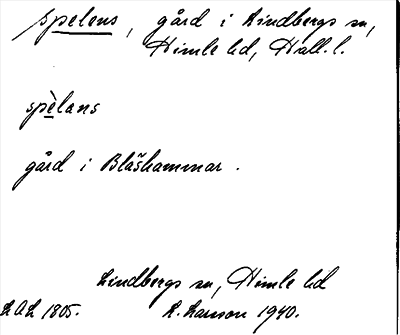 Spelens, gård i Lindbergs sn,
Himle hd, Hall. l.
spèlans
gård i Blåshammar.
Lindbergs sn, Himle hd
LAL 1805. L. Larsson 1940.